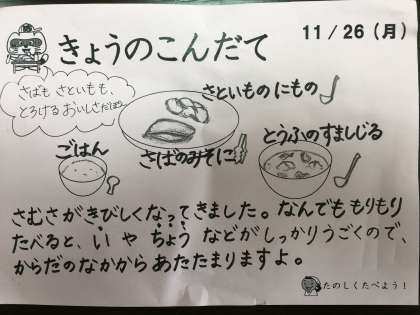 きょうのこんだて
11/26(月)
さばも さといもも、
とろける おいしさだぽん。
さといものにもの
さばのみそに
ごはん
とうふのすましじる
さむさがきびしくなってきました。なんでももりもり
たべると、い や ちょう などがしっかりうごくので、
からだのなかからあたたまりますよ。
たのしくたべよう!